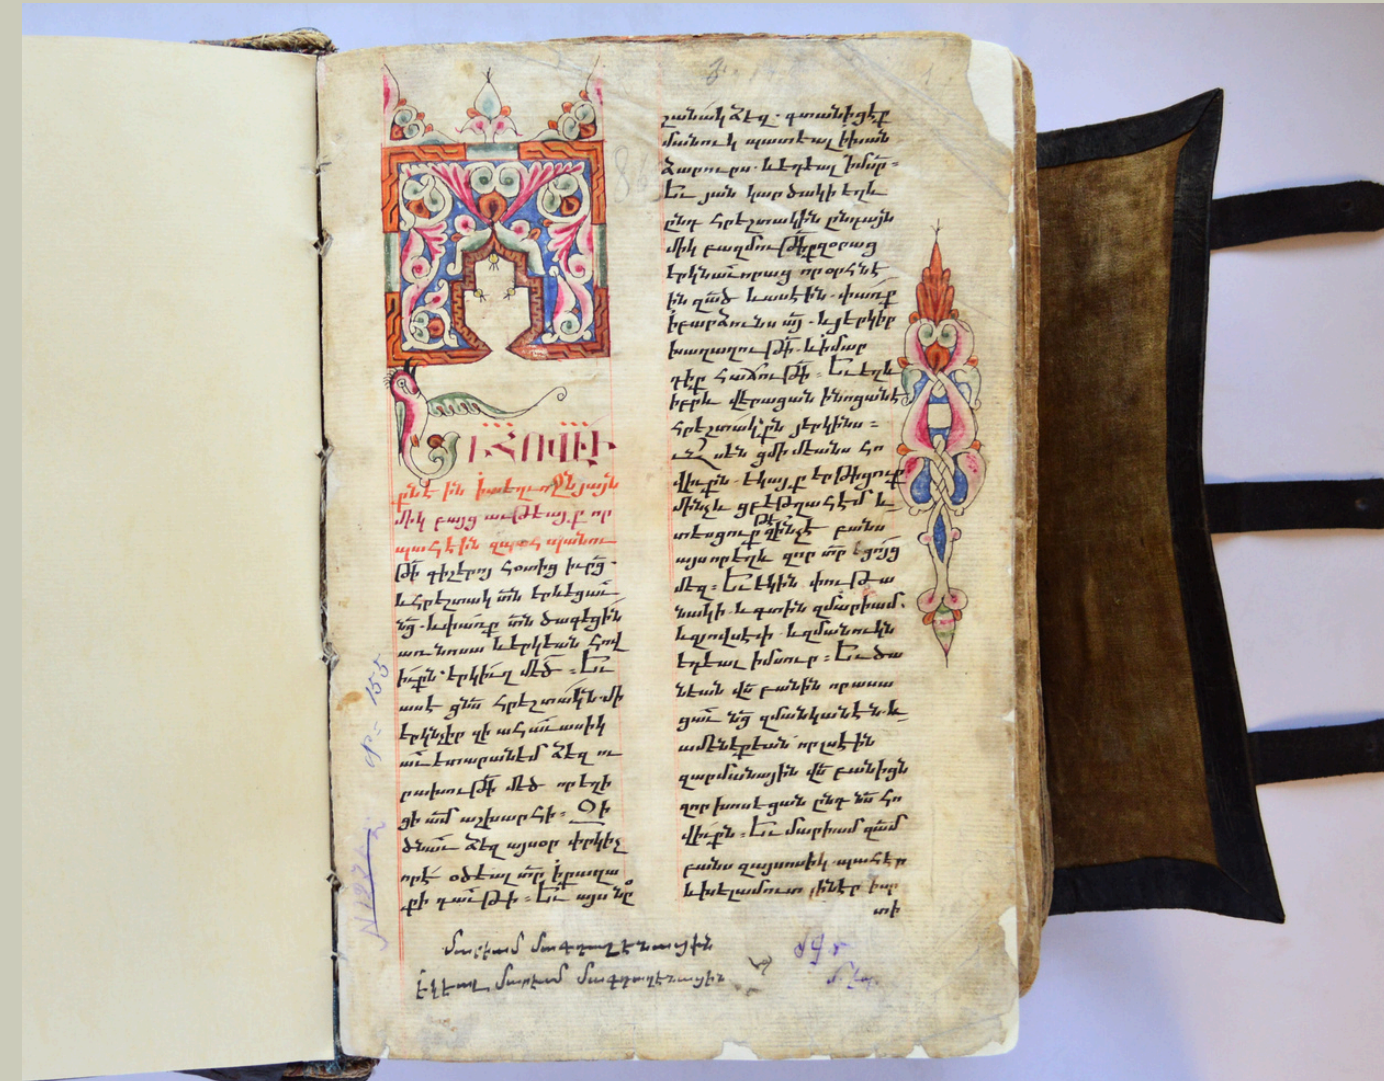 ԵՒ ՀՈՎԻՒ
քն է ին ի տեղւոջն յայն
միկ բացաւթեայք որ
պահէին զպահպանու
թի գիշերոյ հօտից իւրց.
և հրեշտակ տն երևեցաւ
նց. և փառք տն ծագեցին
առ նոսա և երկեան հով
իւքն. երկիւղ մեծ ։ Եւ
ասէ ցնս հրեշտակն. մի
երկնչիք զի ահաւասիկ
աւետարանեմ ձեզ ու
րախութի մեծ որ եղի
ցի ամ աշխարհի ։ Զի
ծնաւ ձեզ այսօր փրկիչ
որ է օծեալ տր ի քաղա
քի դաւթի ։ Եւ այս նշ
շանակ ձեզ. գտանիցէք
մանուկ պատեալ ի խան
ձարուրս. և եդեալ ի մսր ։
Եւ յանկարծակի եղև
ընդ հրեշտակին ընդ այն
միկ բազմութիք զօրաց
երկնաւորաց որ օրհնէ
ին զած և ասէին. փառք
ի բարձունս այ. և յերկիր
խաղաղութի. և ի մար
դիկ հաճութի ։ Եւ եղև
իբրև վերացան ի նոցանէ
հրեշտակքն յերկինս ։
ասեն ցմիմեանս հո
վիւքն. եկայք երթիցուք
մինչև ցբեթղահէմ և
տեսցուք զինչէ բանս
այս որ եղև զոր տր եցոյց
մեզ ։ Եւ եկին փութա
նակի. և գտին զմարիամ.
և զյովսէփ. և զմանուկն
եդեալ ի մսուր ։ Եւ ծա
նեան վս բանին որ ասա
ցաւ նց զմանկանէն. և
ամենեքեան որ լսէին
զարմանային վս բանիցն
զոր խօսեցան ընդ նս հո
վիւքն ։ Եւ մարիամ զամ
բանս զայսոսիկ պահէր
և խելամուտ լինէր իսր
տի
մարիամ մագդաղենացին
եկեալ մարիամ մագդաղենացին